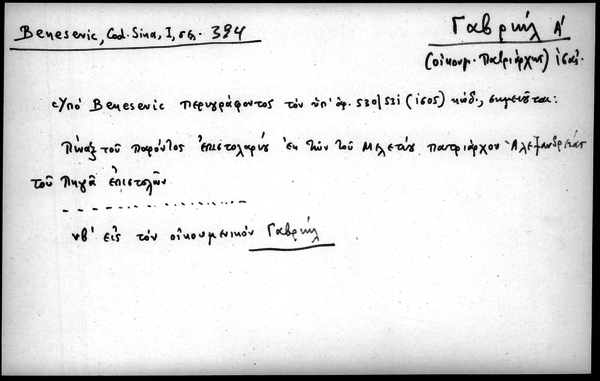 Benesevic, Cod. Sina, I, σς. 394
Γαβριήλ Α'
(οἰκουμ. Πατριάρχης)
Ὑπό Benesevic περιγράφοντος τόν ὑπ' ἀρ. 530/531 (1505) κώδ., σημειοῦται:
Πίναξ τοῦ παρόντος ἐπιστολαρίου ἐκ τῶν τοῦ Μελετίου πατριάρχου Ἀλεξανδρείας
τοῦ Πηγᾶ ἐπιστολῶν
νβ' εἰς τόν οἰκουμενικόν Γαβριήλ